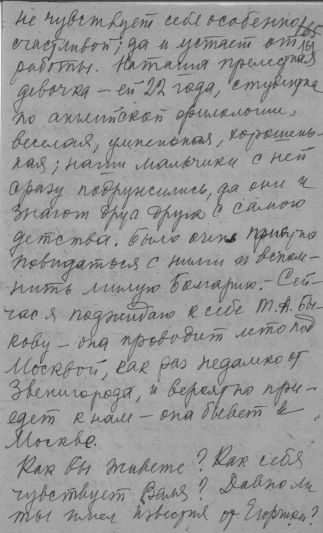 не чувствует себя особенно
165
счастливой; да и устает от
161
работы. Наташа прелестная
девочка – ей 22 года, студентка
по английской филологии,
веселая, умненькая, хорошень-
кая; наши мальчики с ней
сразу подружились, да они и
знают друг друга с самого
детства. Было очень приятно
повидаться с ними и вспом-
нить милую Болгарию. – Сей-
час я поджидаю к себе Т. А. Бы-
кову – она проводит лето под
Москвой, как раз недалеко от
Звенигорода, и вероятно при-
едет к нам – она бывает в
Москве.
Как вы живете? Как себя
чувствует Валя? Давно ли
ты имел известия от Егоржки?